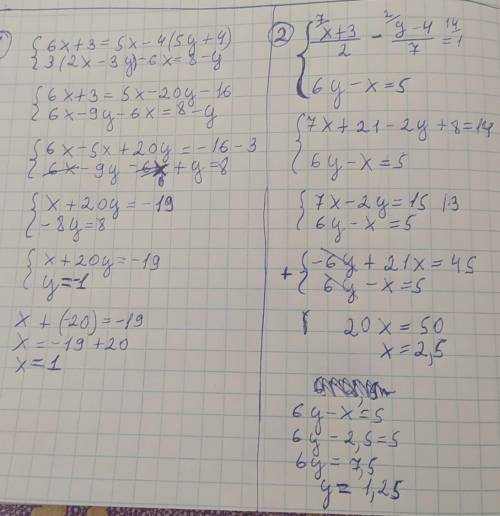 6x+3=5x-4(5y+4)
3(2x-3y)-6x=8-y
6x+3=5x-20y-16
6x-9y-6x=8-y
6x-5x+20y=-16-3
6x-9y-6x+y=8
x+20y=-19
-8y=8
x+20y=-19
y=-1
x+(-20)=-19
x=-19+20
x=1
2
7 2 14
x+3/2 - y-4/7 = 1
6y-x=5
7x+21-2y+8=14
6y-x=5
7x-2y=15 |3
6y-x=5
+ -6y+21x=45
6y-x=5
20x=50
x=2,5
6y-x=5
6y-2,5=5
6y=7,5
y=1,25